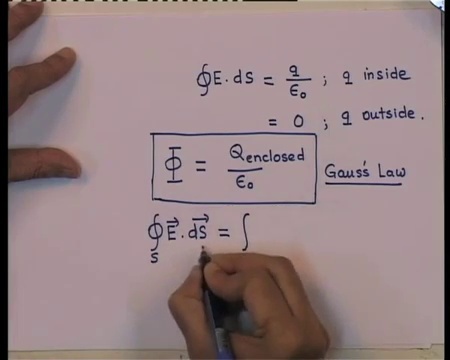 ∮E.ds = q/ε₀ ; q inside
= 0 ; q outside.
Φ = Qenclosed/ε₀ Gauss's Law
∮ₛ E⃗.ds⃗ = ∫